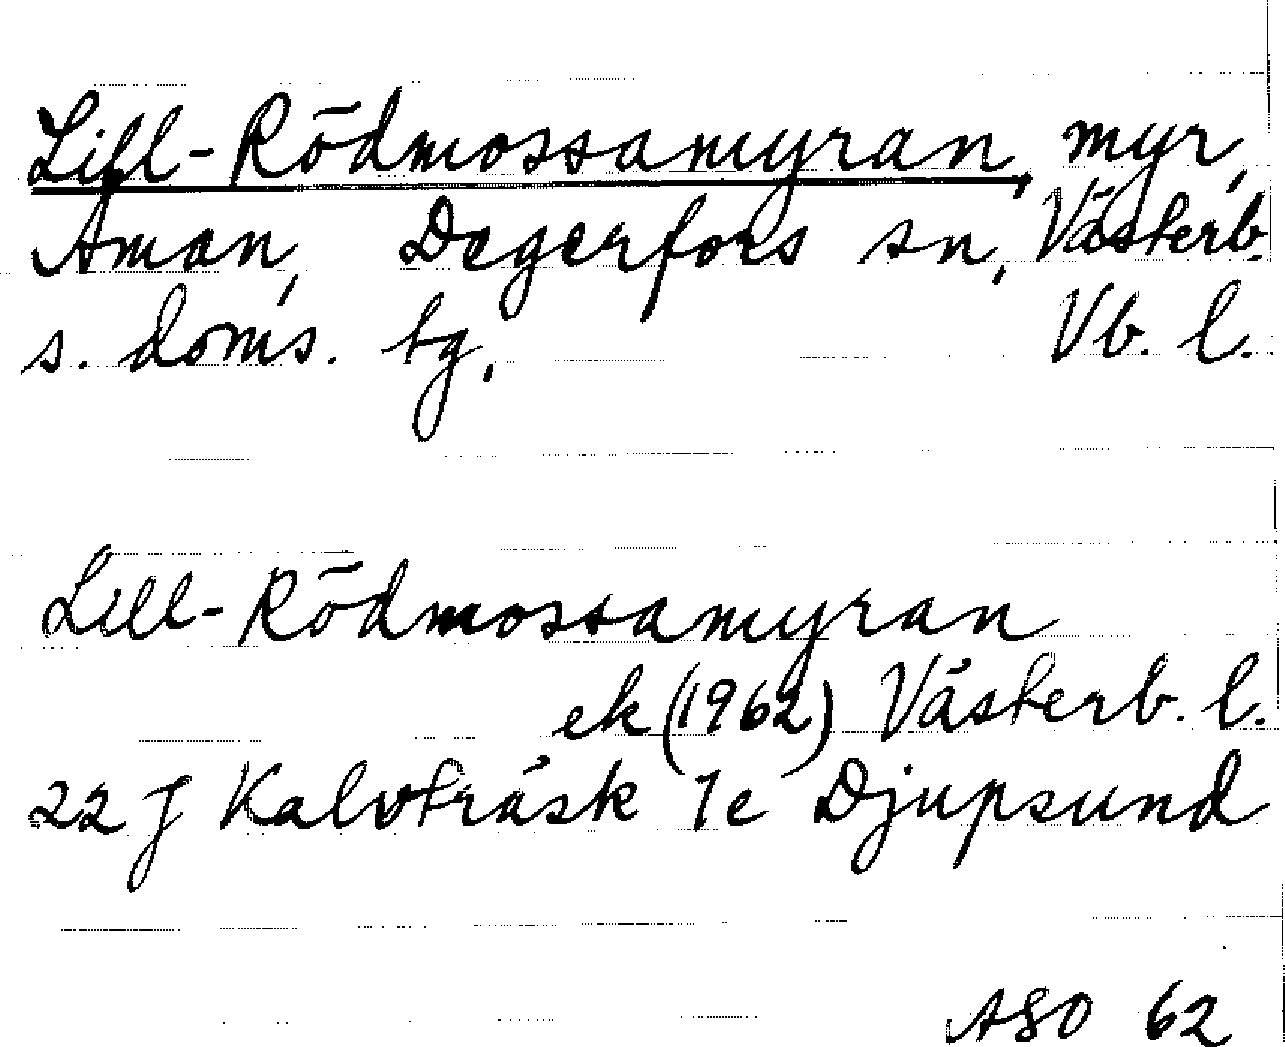 Lill-Rödmossamyran, myr,
Åman, Degerfors sn, Västerb.
s. doms. tg, Vb. l.
Lill-Rödmossamyran
ek (1962) Västerb. l.
22 J Kalvträsk 1e Djupsund
ASO 62